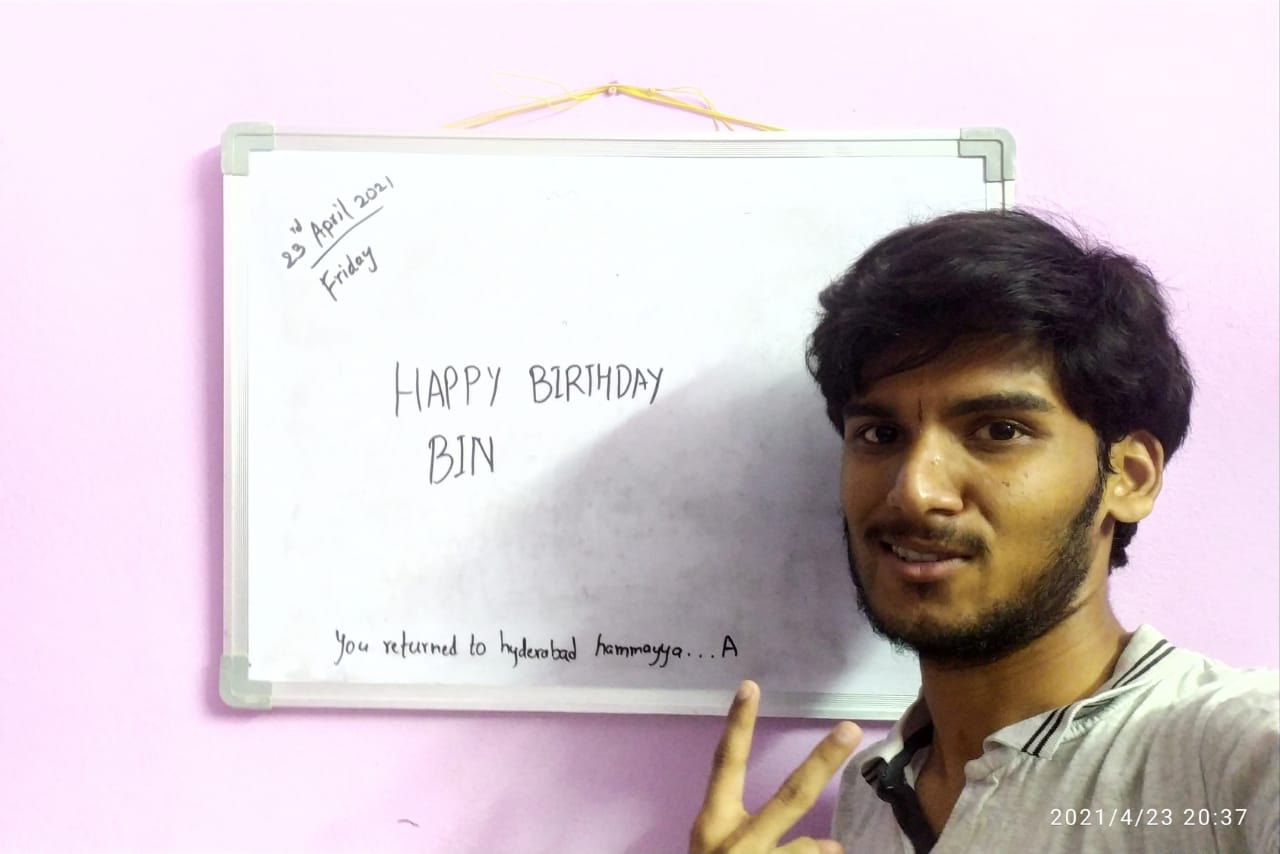 23rd April 2021
Friday
HAPPY BIRTHDAY
BIN
You returned to hyderabad hammayya...A
2021/4/23 20:37